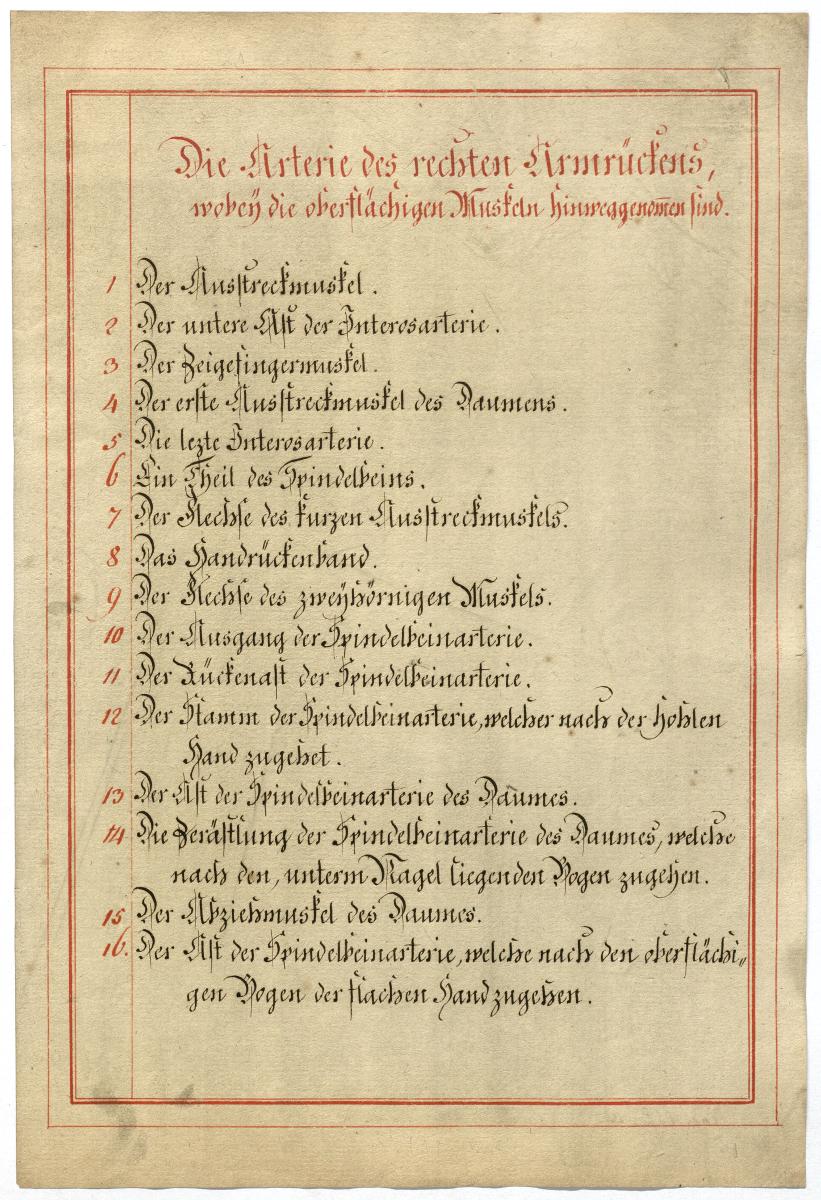 Die Arterie des rechten Armrückens,
wobeÿ die oberflächigen Muskeln hinweggenom̅en sind.
1 Der Ausstreckmuskel.
2 Der untere Ast der Interosarterie.
3 Der Zeigefingermuskel.
4 Der erste Ausstreckmuskel des Daumens.
5 Die lezte Interosarterie.
6 Ein Theil des Spindelbeins.
7 Der Flechse des kurzen Ausstreckmuskels.
8 Das Handrückenband.
9 Der Flechse des zweÿhörnigen Muskels.
10 Der Ausgang der Spindelbeinarterie.
11 Der Rückenast der Spindelbeinarterie.
12 Der Stamm der Spindelbeinarterie, welcher nach der hohlen
Hand zugehet.
13 Der Ast der Spindelbeinarterie des Daumes.
14 Die Zerästlung der Spindelbeinarterie des Daumes, welche
nach den, unterm Nagel liegenden Bogen zugehen.
15 Der Abziehmuskel des Daumes.
16. Der Ast der Spindelbeinarterie, welche nach den oberflächi„
gen Bogen der flachen Hand zugehen.